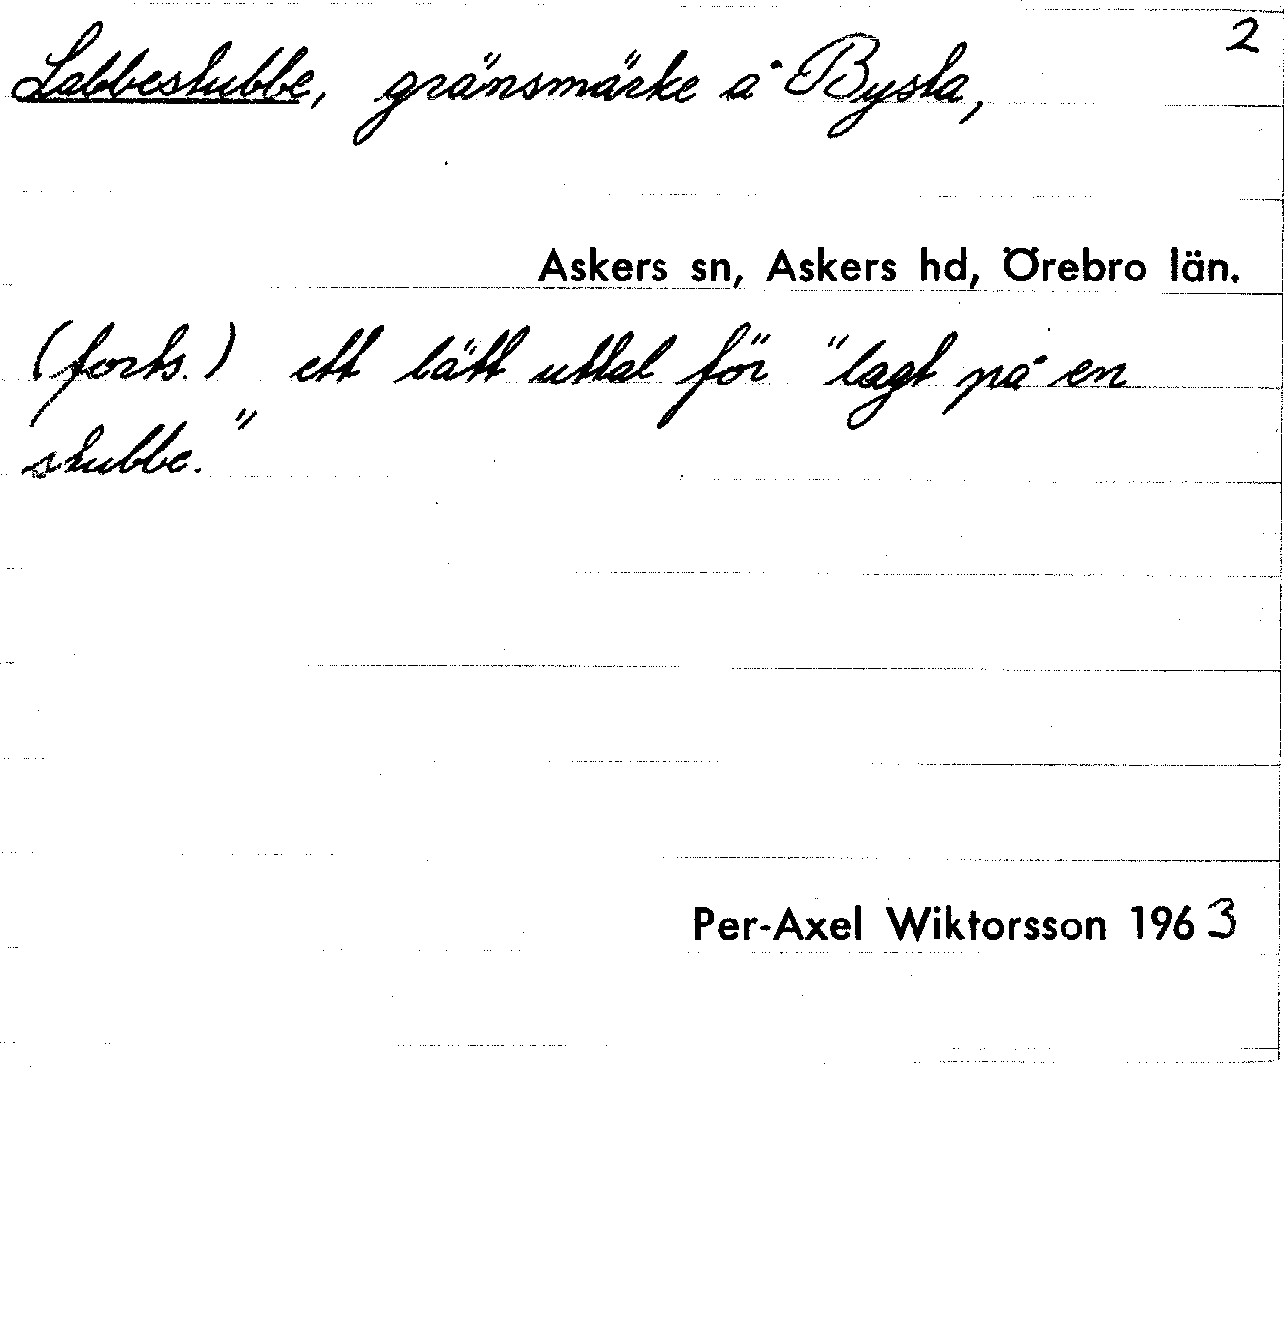 Labbestubbe, gränsmärke å Bysta, 2
Askers sn, Askers hd, Örebro län.
(forts.) ett lätt uttal för "lagt på en
stubbe."
Per-Axel Wiktorsson 1963